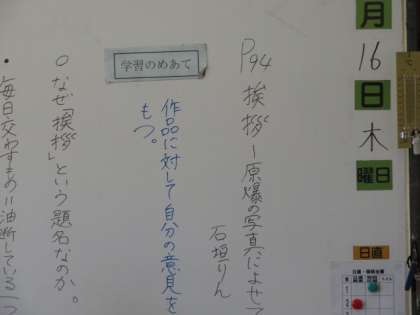 月
16
日
木
曜日
日直
P94 挨拶ー原爆の写真によせて
石垣りん
学習のめあて
作品に対して自分の意見を
もつ。
○なぜ「挨拶」という題名なのか。
・毎日交わすもの=油断している一つ